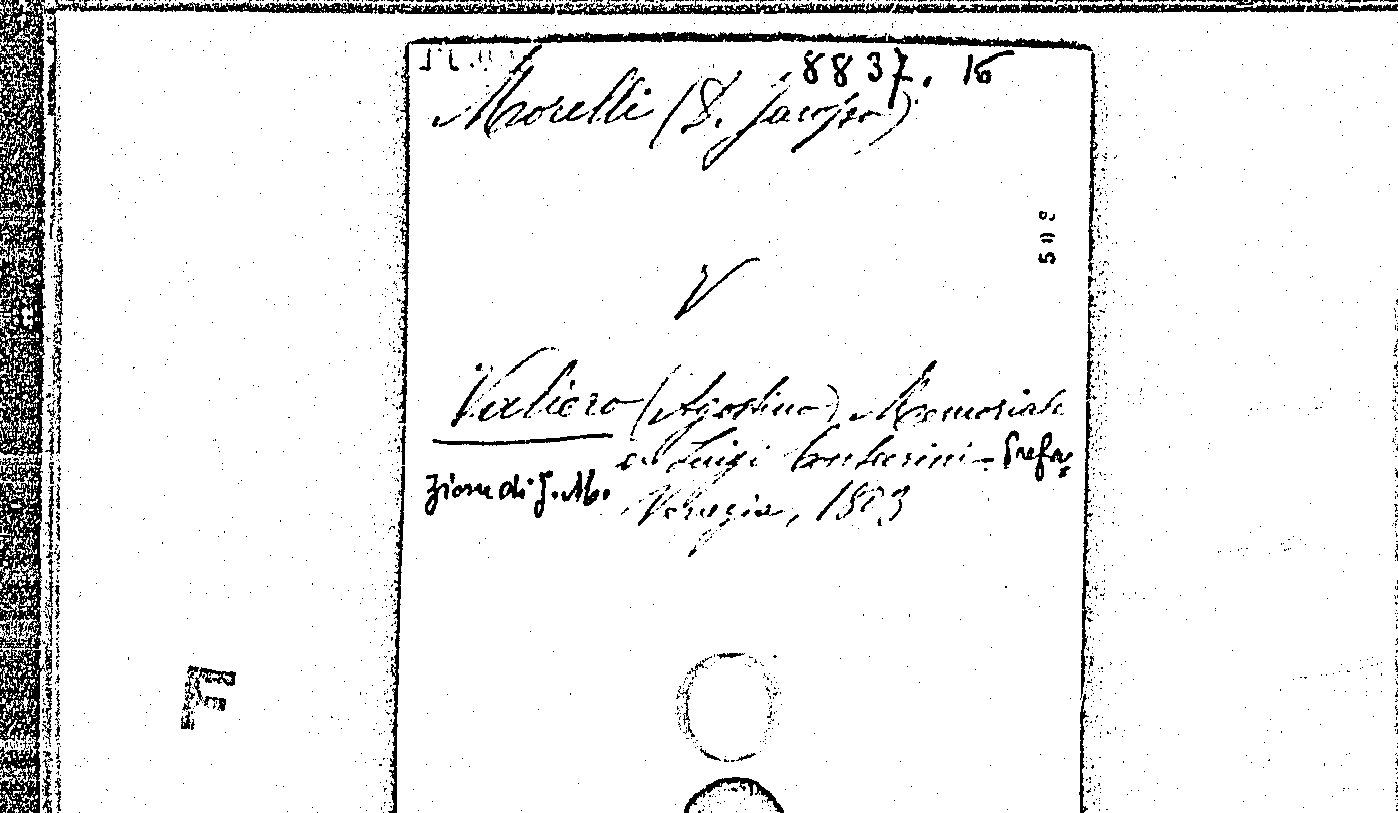 8837. 16
Morelli (D. Jacopo)
508
V
Valiero (Agostino) Memoriale
a Luigi Contarini - Prefa=
zione di J. M. Venezia, 1803
F